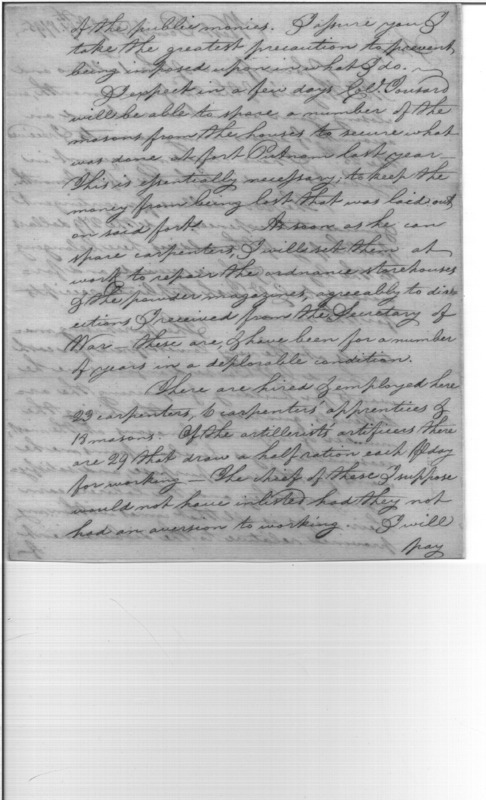 of the public monies. I assure you I
take the greatest precaution to prevent
being imposed upon in what I do. —
I expect in a few days Col.º Tousard
will be able to spare a number of the
masons from the houses to secure what
was done at fort Putnam last year —
This is essentially necessary, to keep the
money from being lost that was laid out
on said fort. As soon as he can
spare carpenters, I will set them at
work to repair the ordnance storehouses
& the powder magazines, agreeably to dir-
ections I received from the Secretary of
War — these are, & have been for a number
of years in a deplorable condition.
There are hired & employed here
23 carpenters, 6 carpenters' apprentices &
13 masons. Of the artillerists artificers there
are 29 that draw a half ration each ⅌ day
for working — The chief of these I suppose
would not have inlisted had they not
had an aversion to working. I will
pay